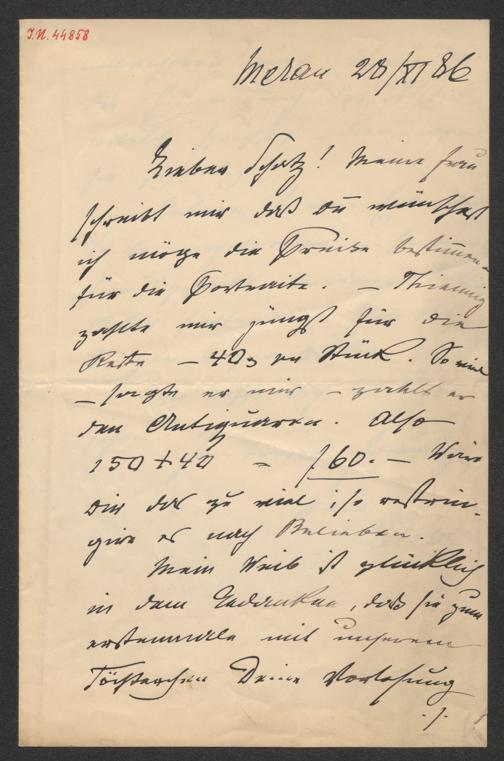 I.N. 44858
Meran 28/XI 86
Lieber Schatz! Meine Frau
schreibt mir daß Du wünschest
ich möge die Preise bestimmen
für die Portraite. –
zahlte mir jüngst für die
Reste – 40 ein Stück. So viel
– sagte er mir – zahlt er
den Antiquaren. Also
150 + 40 = 60. – Wäre
Dir das zu viel, so restrin-
gire es nach Belieben.
Mein Weib ist glücklich
in dem Gedanken, daß sie zum
erstenmale mit unserem
Töchterchen Deine Vorlesung
./.